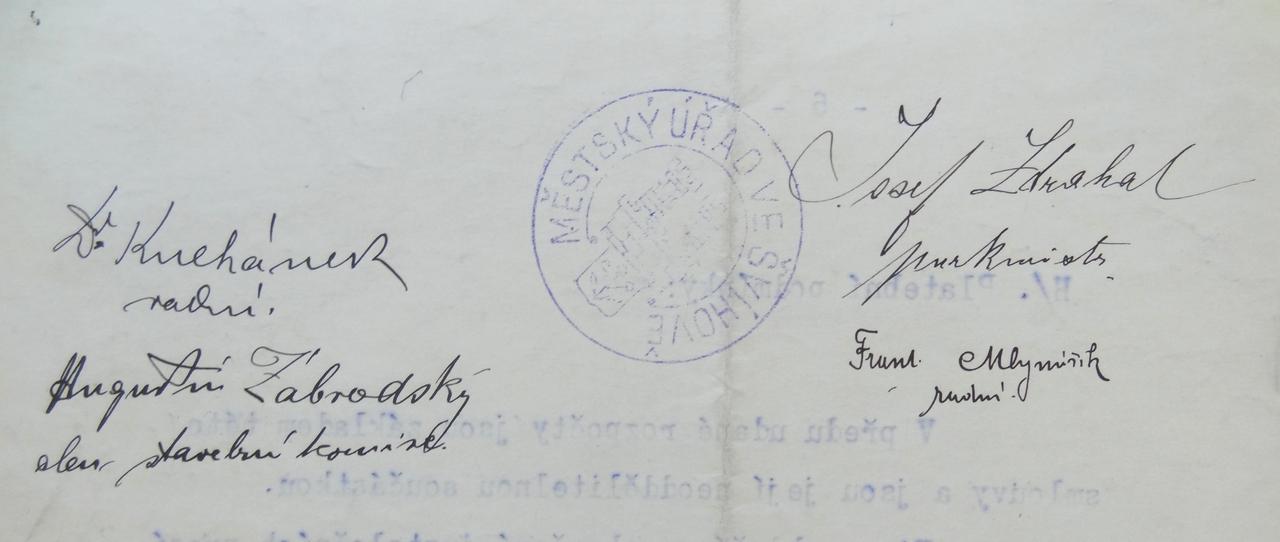 MĚSTSKÝ ÚŘAD VE SVÍHOVĚ
Josef Zdrahal
purkmistr
Dr. Kuchánek
radní.
Frant. Mlynařík
radní.
Augustin Zábrodský
člen stavební komise.
- 6 -
H/. Platební podmínky.
V předu udané rozpočty jsou základem této
smlouvy a jsou její neoddělitelnou součástkou.